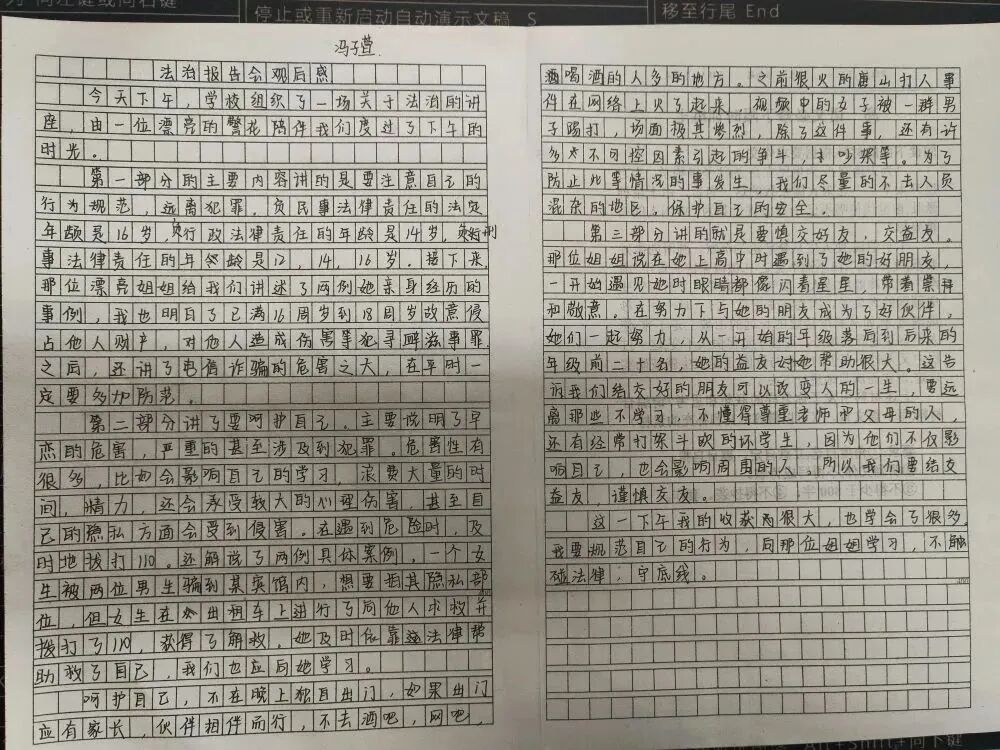 为 向左键或向右键
停止或重新启动自动演示文稿 S
移至行尾 End
冯子萱
法治报告会观后感
今天下午，学校组织了一场关于法治的讲
座，由一位漂亮的警花陪伴我们度过了下午的
时光。
第一部分的主要内容讲的是要注意自己的
行为规范，远离犯罪。负民事法律责任的法定
年龄是16岁，负行政法律责任的年龄是14岁，负刑
事法律责任的年龄是12，14，16岁。接下来，
那位漂亮姐姐给我们讲述了两例她亲身经历的
事例，我也明白了已满16周岁到18周岁故意侵
占他人财产，对他人造成伤害等犯寻衅滋事罪。
之后，还讲了电信诈骗的危害之大，在平时一
定要多加防范。
第二部分讲了要呵护自己。主要说明了早
恋的危害，严重的甚至涉及到犯罪。危害性有
很多，比如会影响自己的学习，浪费大量的时
间，精力，还会承受较大的心理伤害，甚至自
己的隐私方面会受到侵害。在遇到危险时，及
时地拨打110。还解说了两例具体案例。一个女
生被两位男生骗到某宾馆内，想要拍其隐私部
位，但女生在出租车上进行了向他人求救并
拨打了110，获得了解救。她及时依靠法律帮
助救了自己，我们也应向她学习。
呵护自己，不在晚上独自出门，如果出门
应有家长，伙伴相伴而行，不去酒吧，网吧，
酒喝酒的人多的地方。之前很火的唐山打人事
件在网络上火了起来，视频中的女子被一群男
子踢打，场面极其惨烈，除了这件事，还有许
多不可控因素引起的争斗，吵架等。为了
防止此等情况的事发生，我们尽量的不去人员
混杂的地区，保护自己的安全。
第三部分讲的就是要慎交好友，交益友。
那位姐姐说在她上高中时遇到了她的好朋友，
一开始遇见她时眼睛都像闪着星星，带着崇拜
和敬意。在努力下与她的朋友成为了好伙伴。
她们一起努力，从一开始的年级落后到后来的
年级前二十名，她的益友对她帮助很大。这告
诉我们结交好的朋友可以改变人的一生，要远
离那些不学习，不懂得尊重老师和父母的人，
还有经常打架斗殴的坏学生，因为他们不仅影
响自己，也会影响周围的人。所以我们要结交
益友，谨慎交友。
这一下午我的收获很大，也学会了很多。
我要规范自己的行为，向那位姐姐学习，不触
碰法律，守底线。